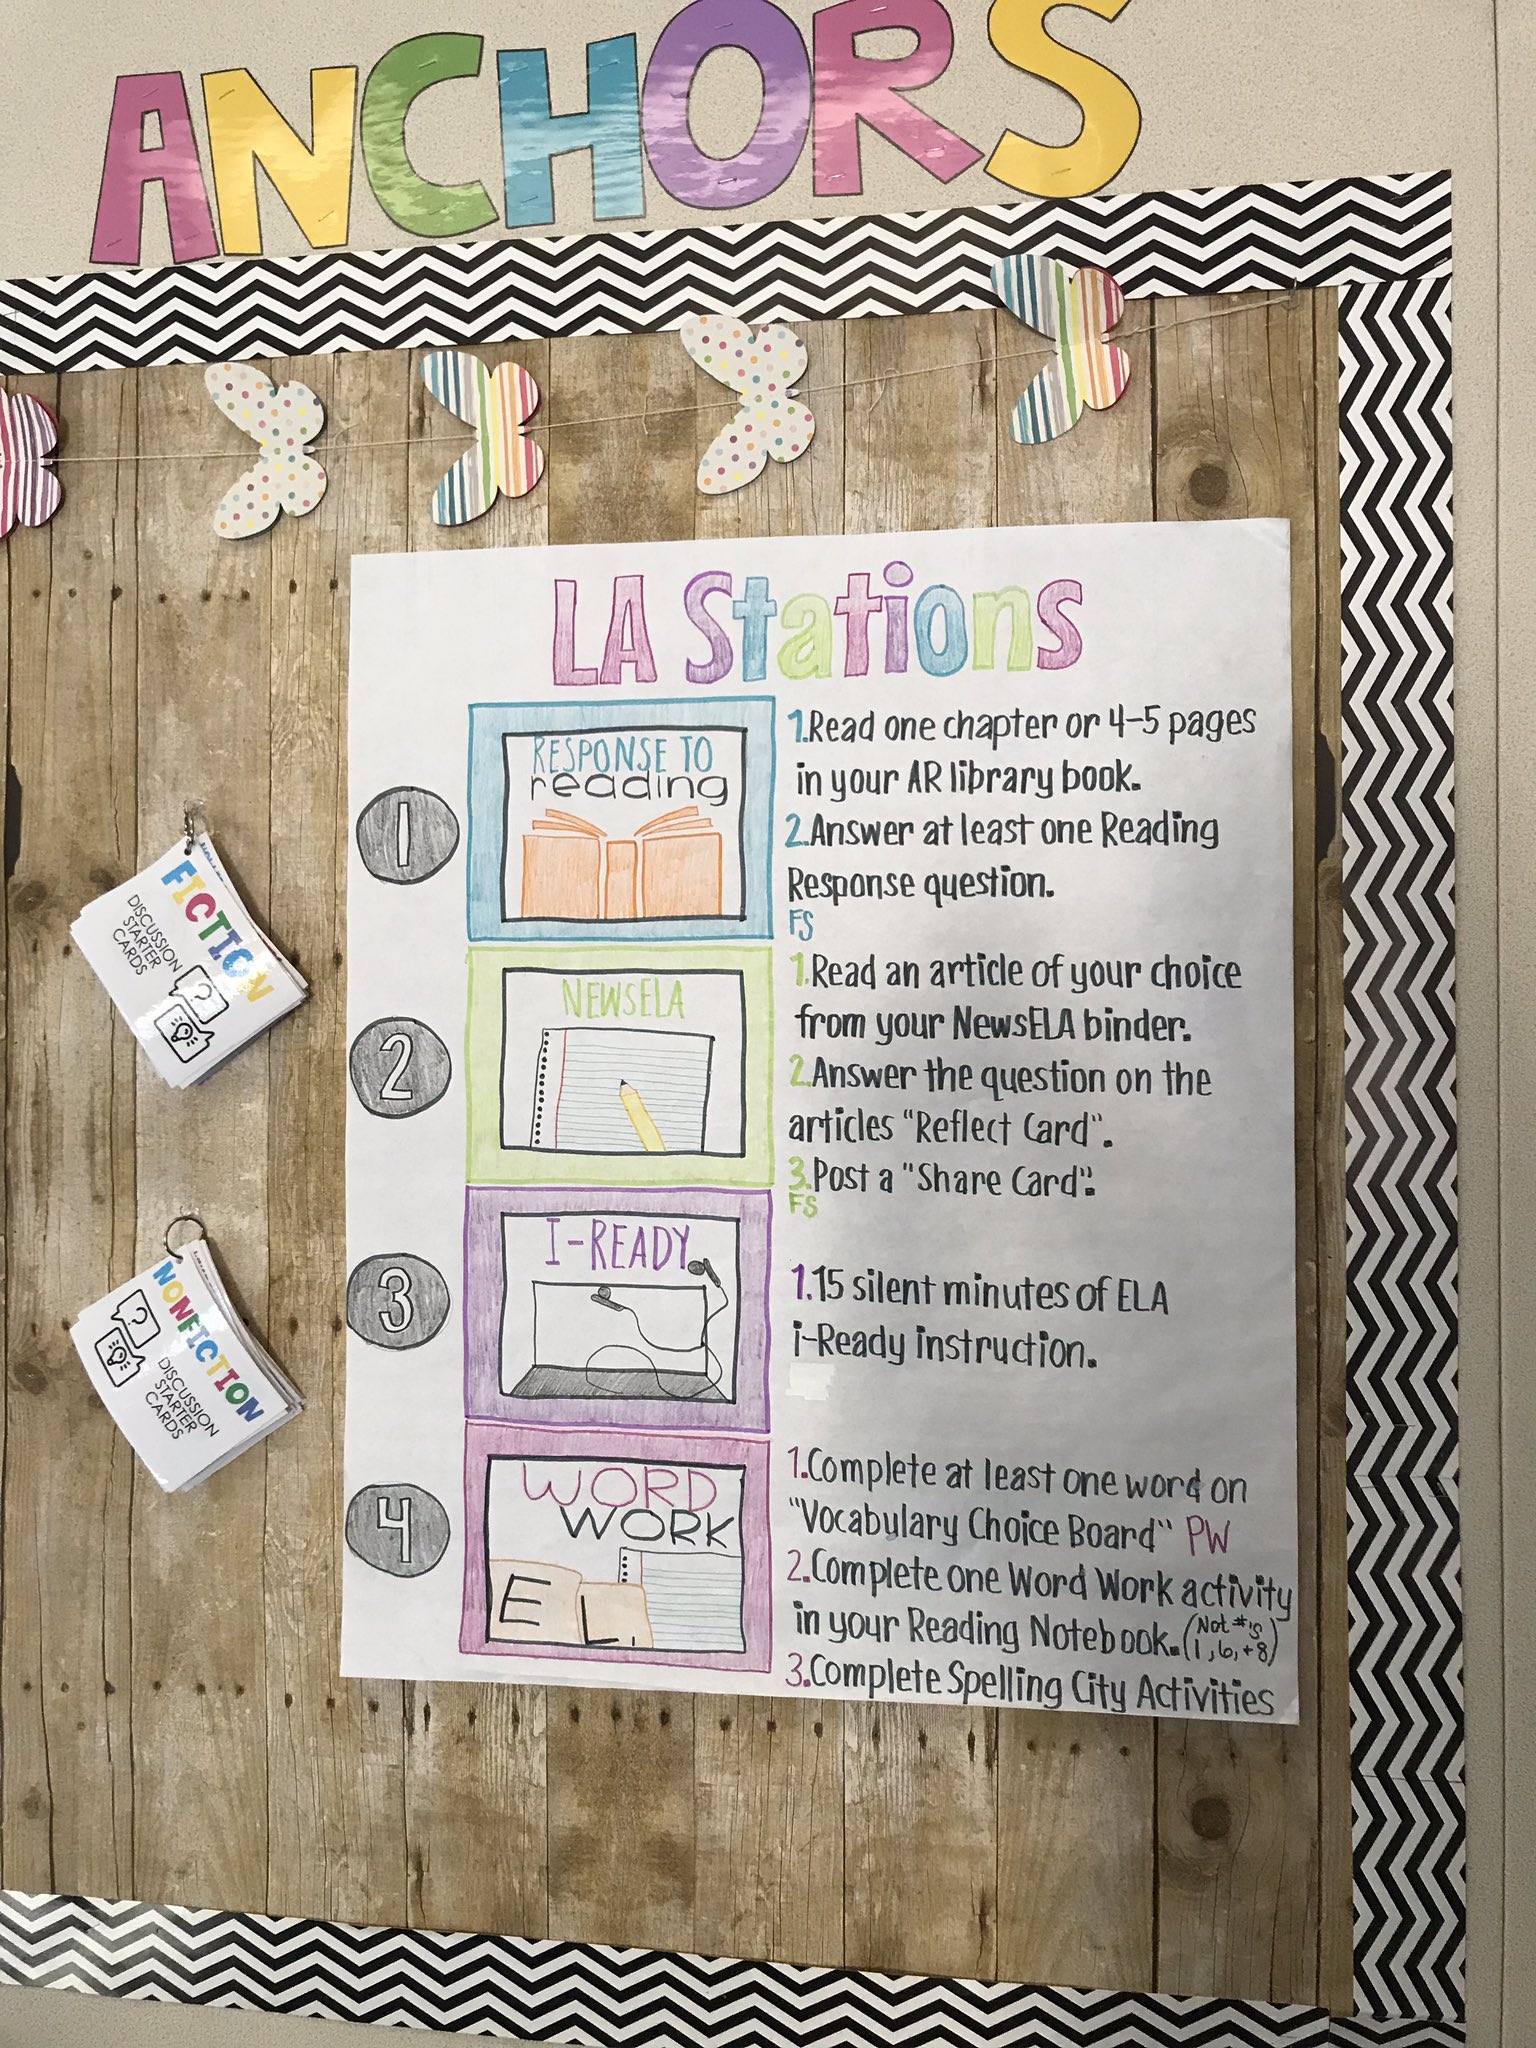 ANCHORS
LA Stations
1
RESPONSE TO
reading
1.Read one chapter or 4-5 pages
in your AR library book.
2.Answer at least one Reading
Response question.
FS
2
NEWSELA
1.Read an article of your choice
from your NewsELA binder.
2.Answer the question on the
articles "Reflect Card".
3.Post a "Share Card".
FS
3
I-READY
1.15 silent minutes of ELA
i-Ready instruction.
4
WORD
WORK
E L
1.Complete at least one word on
"Vocabulary Choice Board" PW
2.Complete one Word Work activity
in your Reading Notebook. (Not #'s 1, 6, + 8)
3.Complete Spelling City Activities
FICTION
DISCUSSION
STARTER
CARDS
NONFICTION
DISCUSSION
STARTER
CARDS